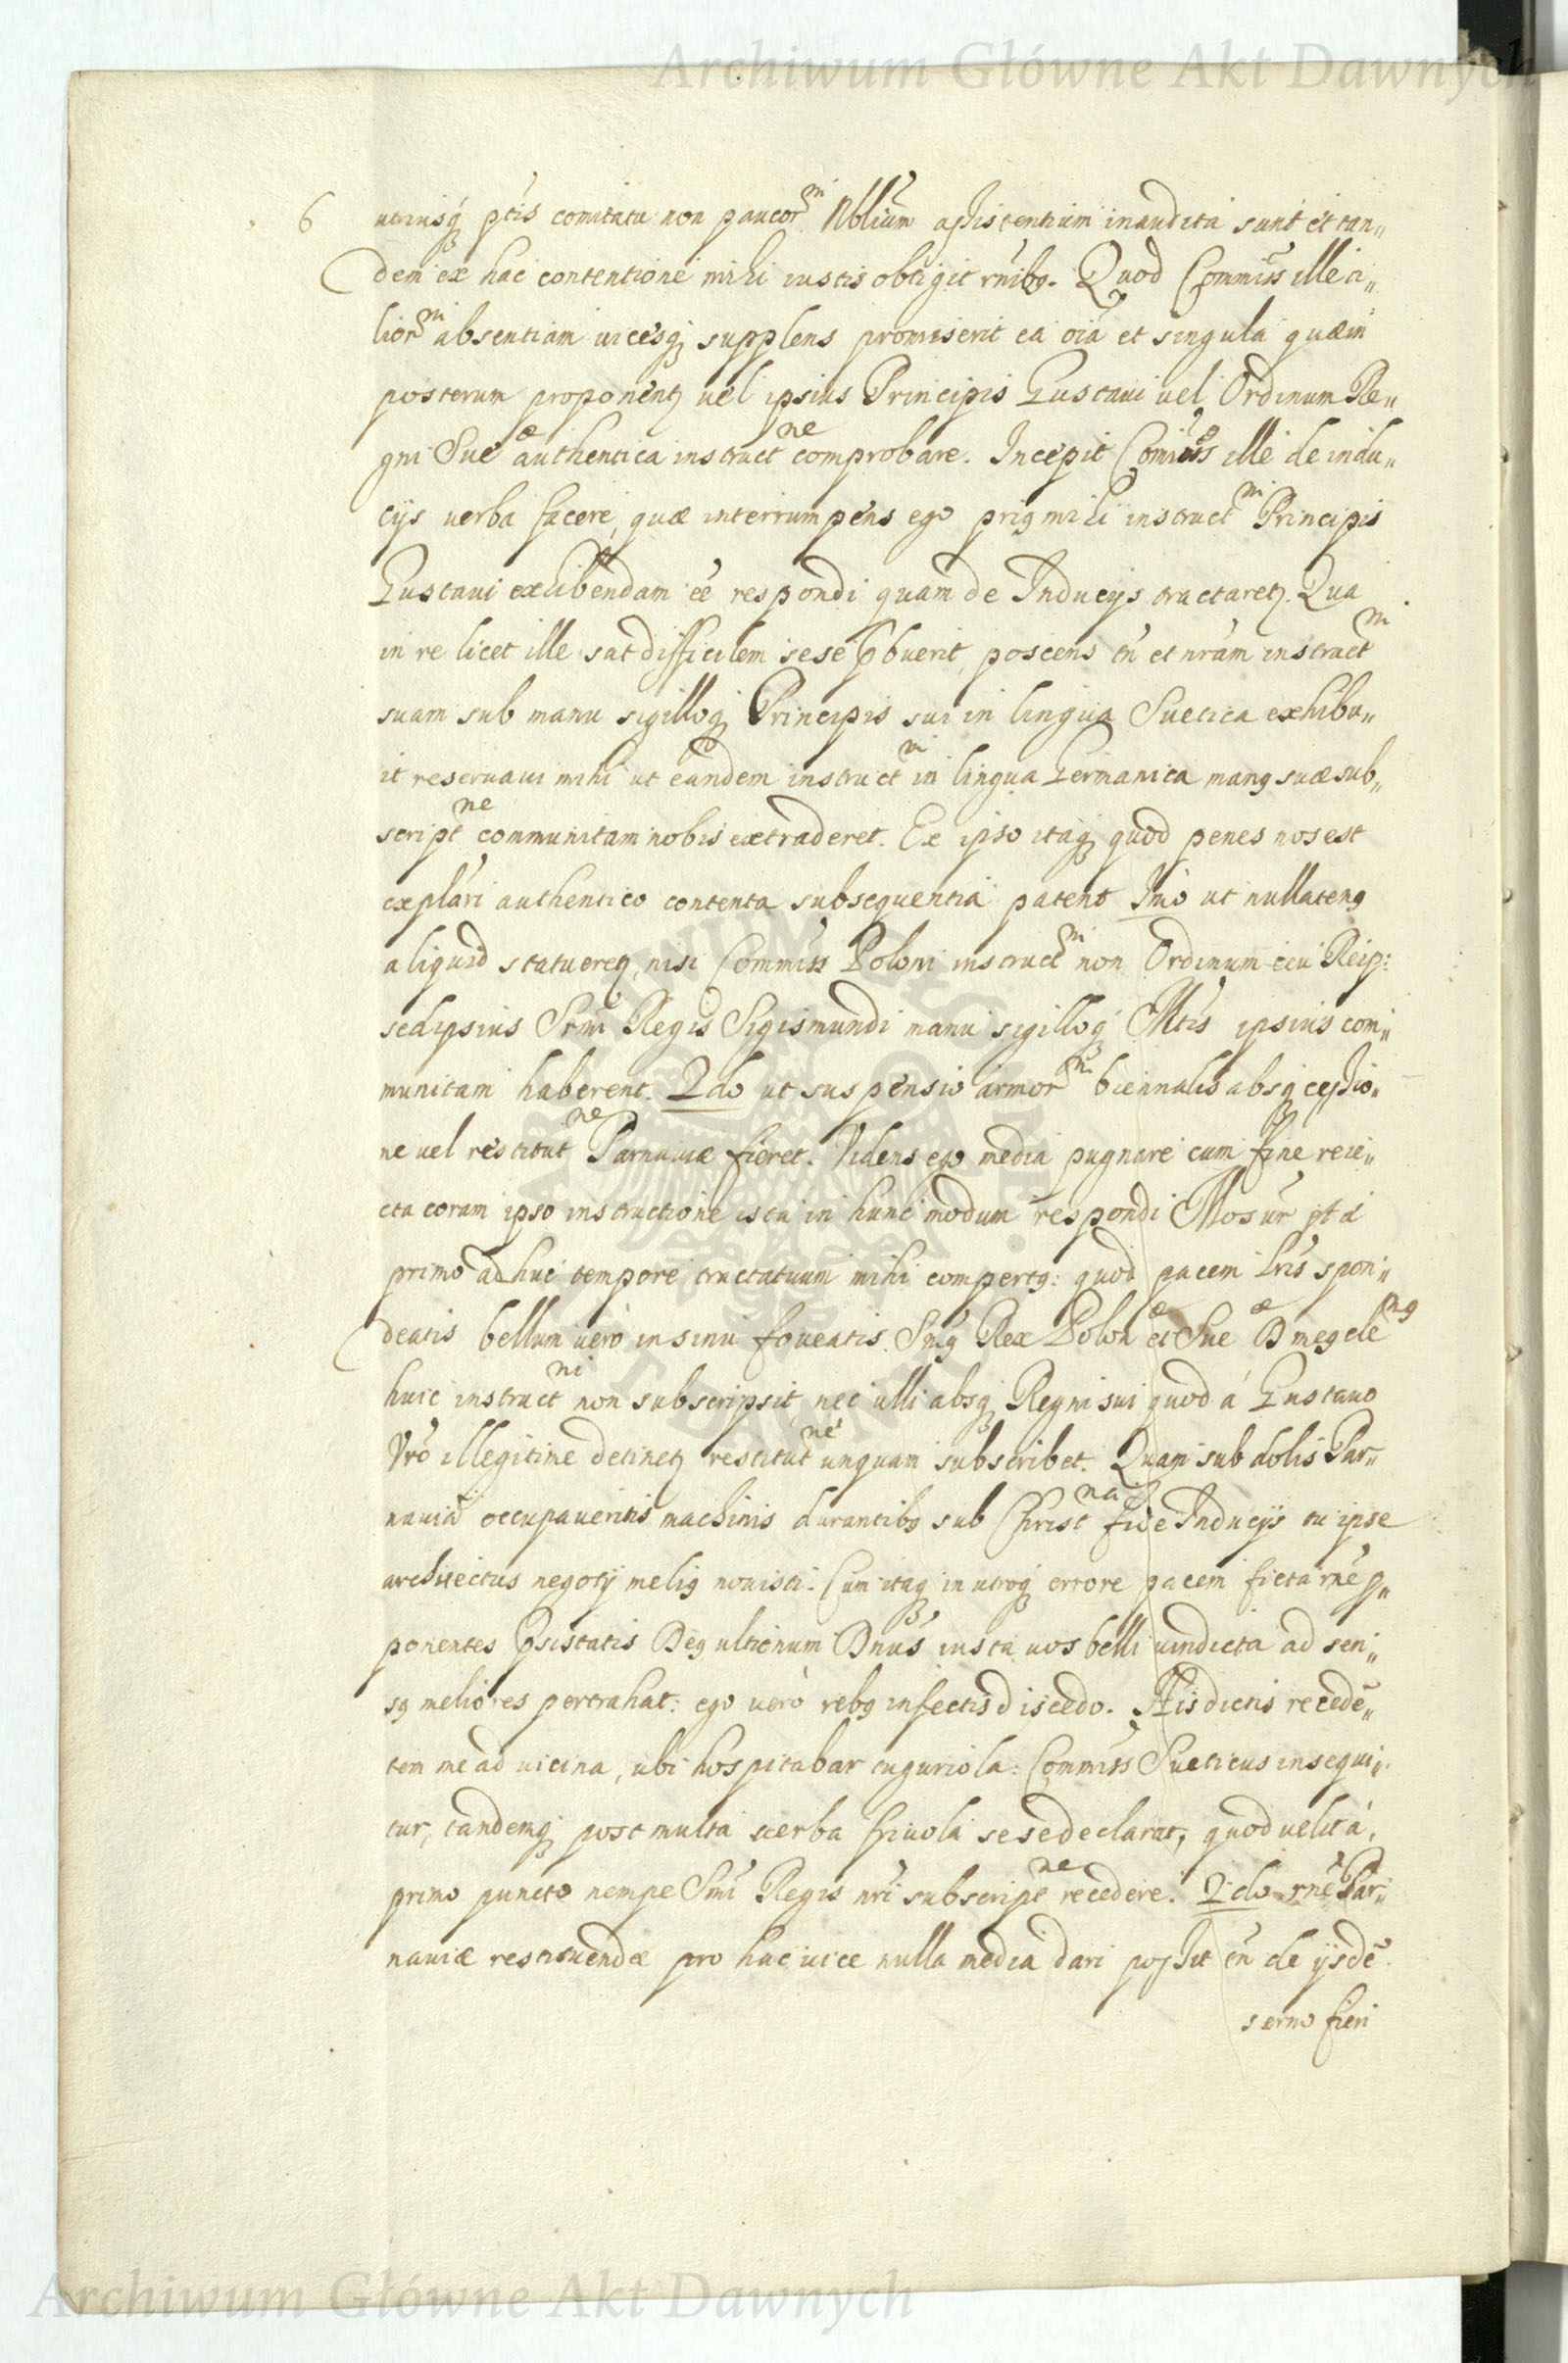 Archiwum Główne Akt Dawnych
6 utriusq; ptis comitatu non paucorm Nblium assistentium inaudita sunt et tan„
dem ex hac contentione mihi iustis obtigit rnibg. Quod Commiss ille a„
liorm absentiam uicesq; supplens promiserit ea oia et singula quæ in
posterum proponentz uel ipsius Principis Gustaui uel Ordinum Re„
gni Sueæ authentica instructne comprobare. Incepit Comiss ille de indu„
cijs uerba facere, quæ interrumpens ego prig mihi instructm Principis
Gustaui exhibendam ee respondi quam de Inducijs tractaretz. Qua
in re licet ille sat difficilem sese pbuerit, poscens tn et nram instructm
suam sub manu sigilloq; Principis sui in lingua Suetica exhibu„
it reseruaui mihi ut eandem instructm in lingua Germanica mang suæ sub„
scriptne communitam nobis extraderet. Ex ipso itaq; quod penes nos est
explari authentico contenta subsequentia patent Imo ut nullateng
aliquid statueretz, nisi Commiss Poloni instructm non Ordinum ceu Reip:
sed ipsius Srmi Regis Sigismundi manu sigilloq; Mtis ipsius com„
munitam haberent. 2do ut suspensio armorm biennalis absq; cessio„
ne uel restitutne Parnauiæ fieret. Videns ego media pugnare cum fine reie„
cta coram ipso instructione ista in hunc modum respondi Mos ur st a
primo ad huc tempore tractatuum mihi compertg: quod pacem lris spon„
deatis bellum uero in sinu foueatis. Smg Rex Polonæ et Sueæ D meg cleng
huic instructni non subscripsit, nec ulli absq; Regni sui quod á Gustauo
Vro illegitime detinetz restitutne unquam subscribet. Quam sub dolis Par„
nauia occupaueritis machinis durantibg sub Christna fide Inducijs tu ipse
architectus negotij melig nouisti. Cum itaq; in utroq; errore pacem ficta rne p„
ponentes psistatis Deg ultionum Dnus iusta uos belli uindicta ad sen„
sg meliores pertrahat: ego uerò rebg infectis discedo. His dictis recede„
tem me ad uicina, ubi hospitabar tuguriola: Commiss Sueticus insequi„
tur, tandemq; post multa uerba friuola sese declarat, quod uelit á,
primo puncto nempe Smi Regis nri subscriptne recedere. 2do rne Par„
nauiæ restituendæ pro hac uice nulla media dari possit tn de ijsdē
sermo fieri
Archiwum Główne Akt Dawnych